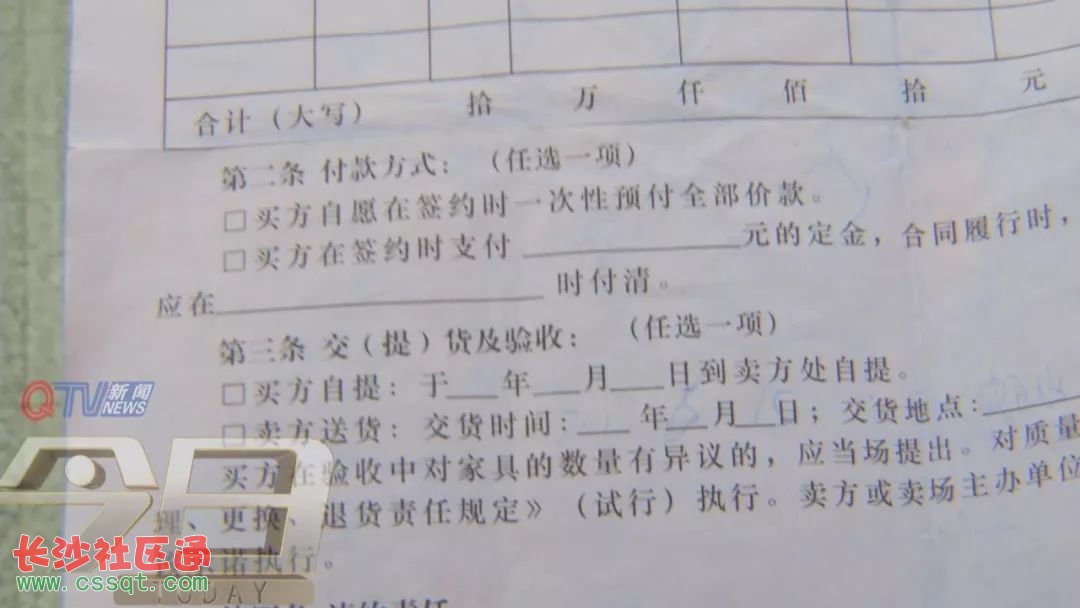 合计（大写） 拾 万 仟 佰 拾 元
第二条 付款方式：（任选一项）
□买方自愿在签约时一次性预付全部价款。
□买方在签约时支付＿＿＿＿＿＿元的定金，合同履行时，
应在＿＿＿＿＿＿＿＿＿时付清。
第三条 交（提）货及验收：（任选一项）
□买方自提：于＿＿年＿＿月＿＿日到卖方处自提。
□卖方送货：交货时间：＿＿年＿＿月＿＿日；交货地点：＿＿＿
买方在验收中对家具的数量有异议的，应当场提出。对质量
理、更换、退货责任规定》（试行）执行。卖方或卖场主办单位
诺执行。
QTV 新闻
NEWS
今日
TODAY
长沙社区通
www.cssqt.com